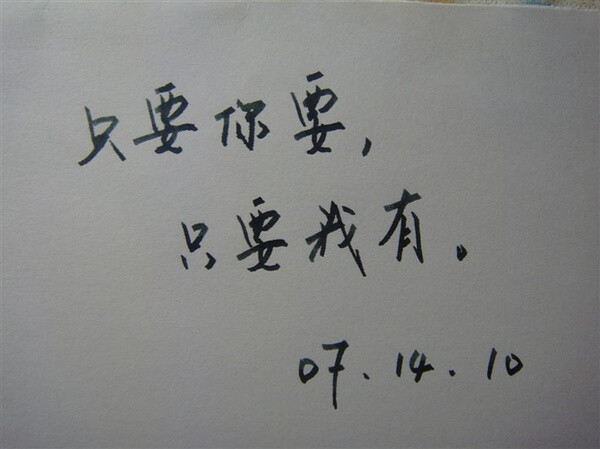 只要你要,
只要我有。
07.14.10